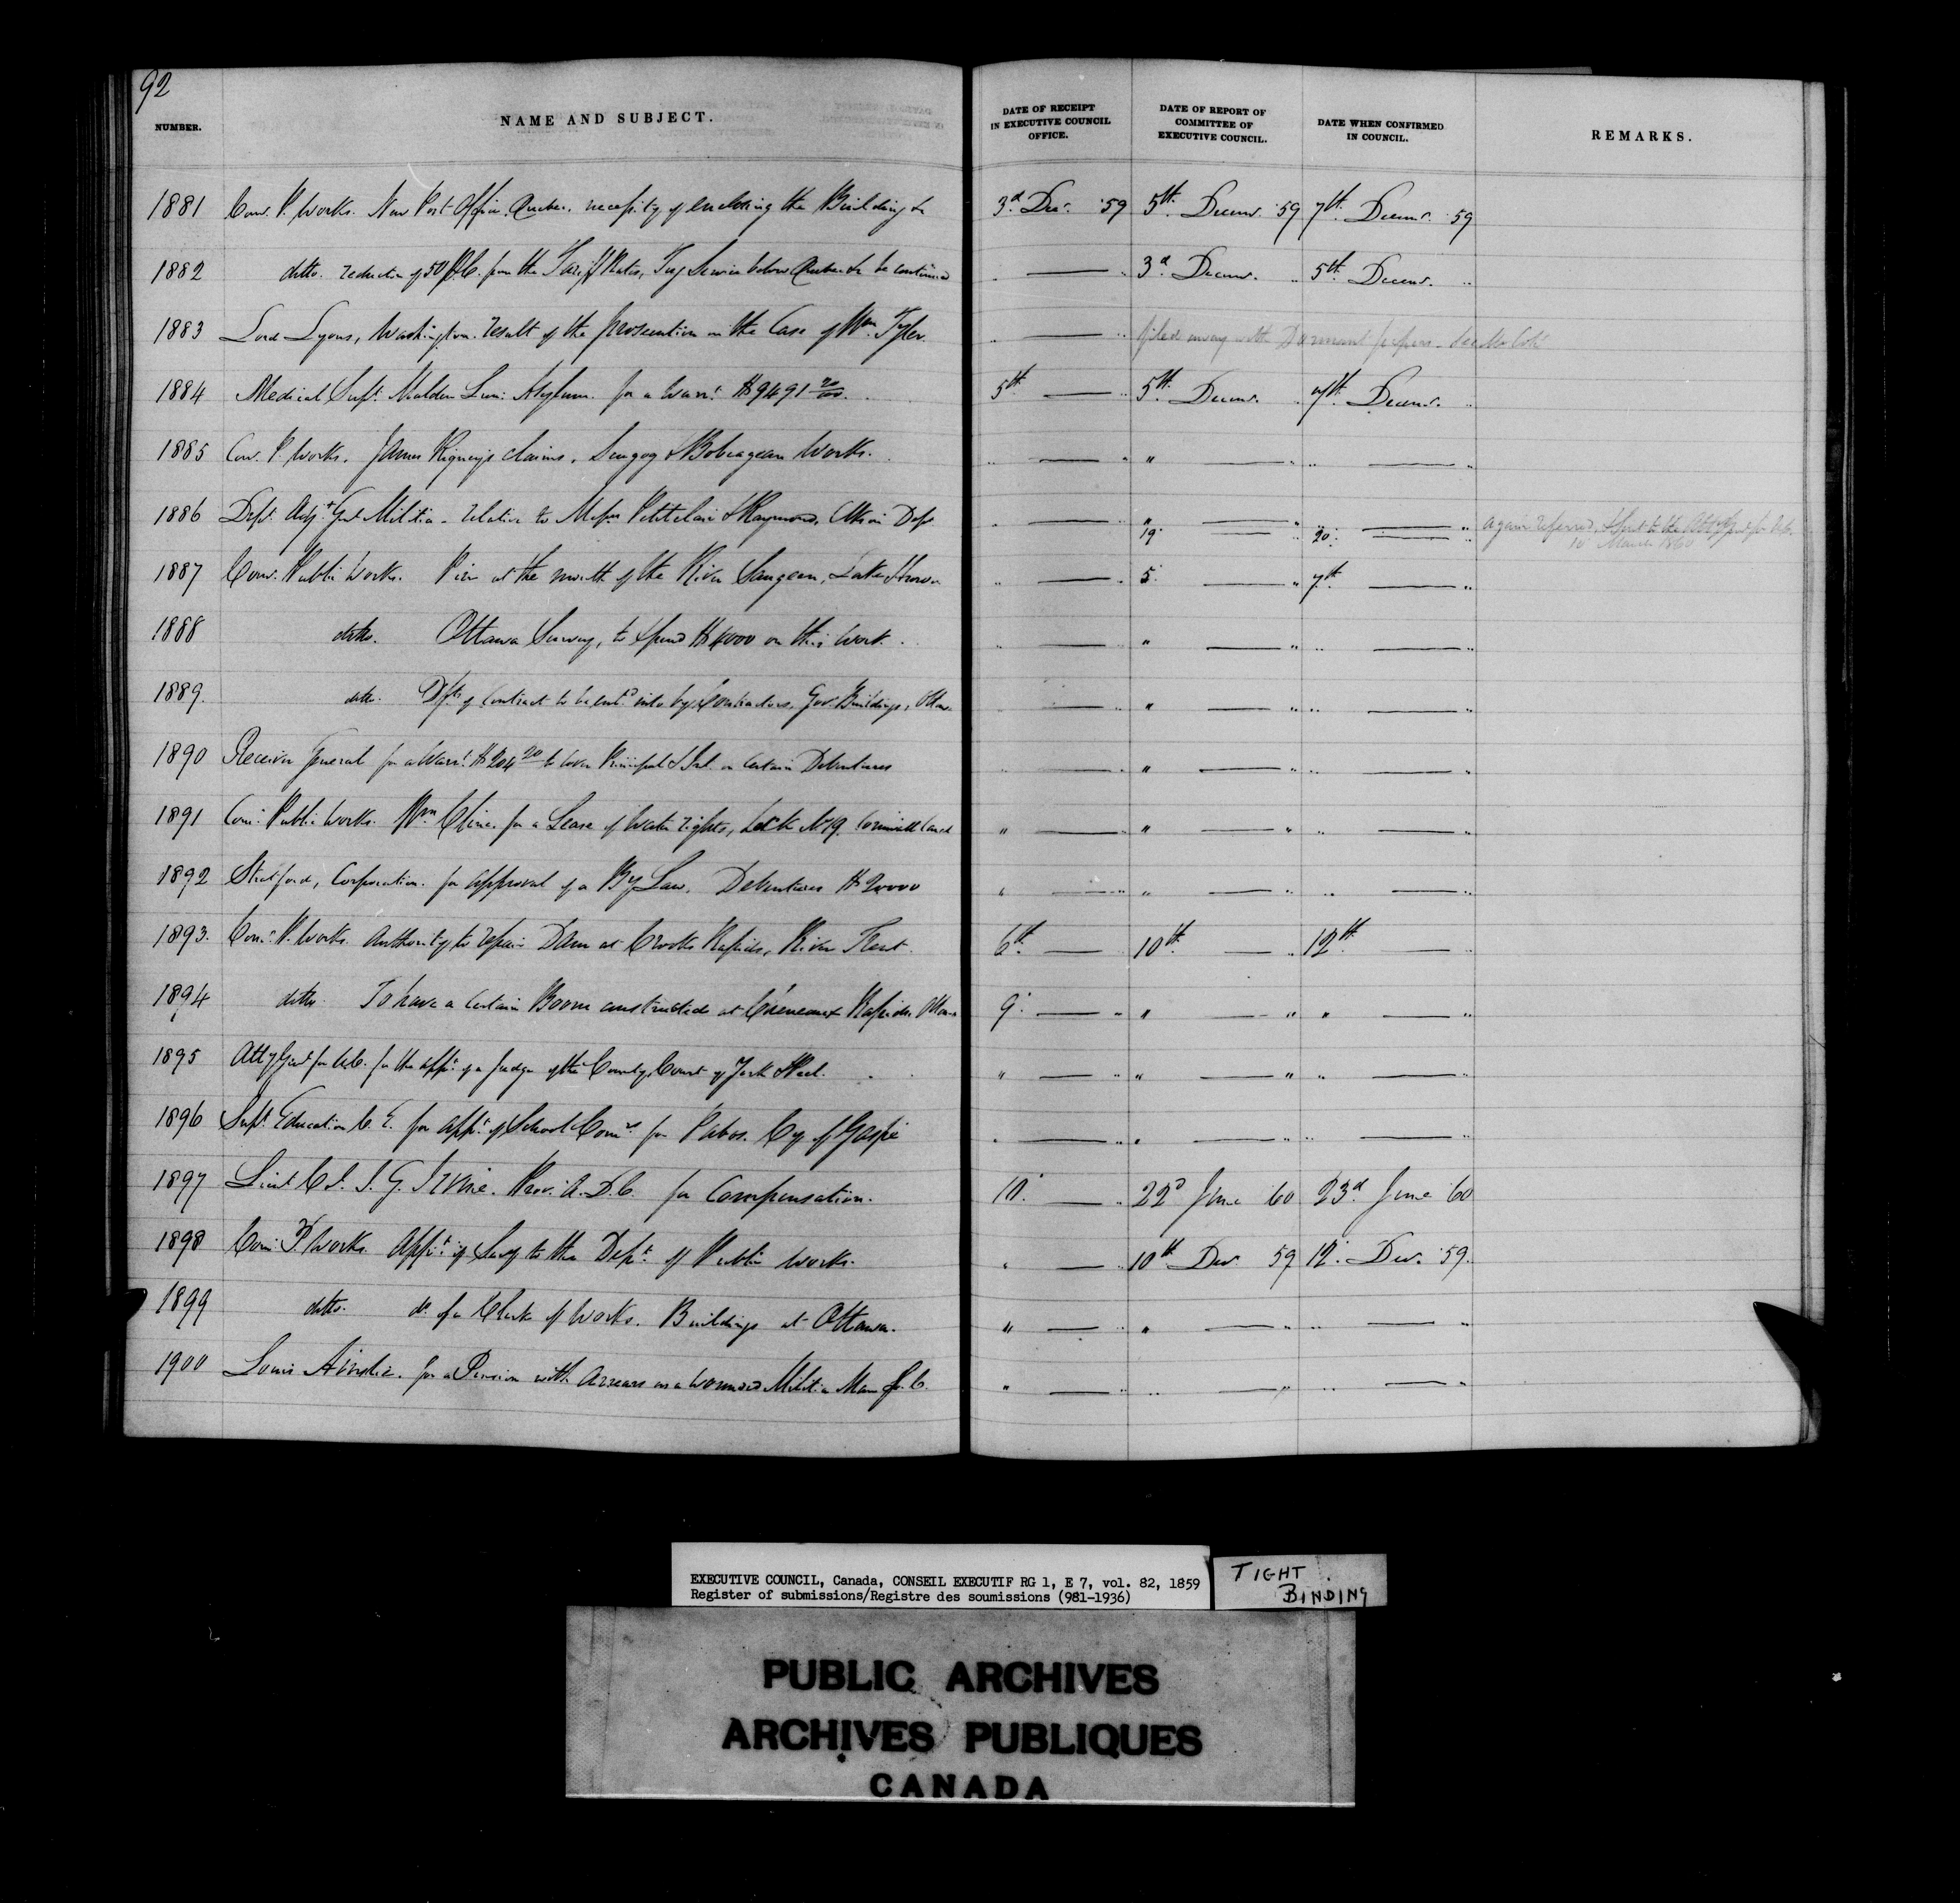 92
NUMBER. NAME AND SUBJECT. DATE OF RECEIPT IN EXECUTIVE COUNCIL OFFICE. DATE OF REPORT OF COMMITTEE OF EXECUTIVE COUNCIL. DATE WHEN CONFIRMED IN COUNCIL. REMARKS.
1881 Com. P. Works. New Post Office, Quebec. necessity of enclosing the Building &c 3d Dec. '59 5th Decemr. '59 7th Decemr. '59
1882 ditto. reduction of 50 P.C. from the Tariff Rates, Tug Service below Quebec to be continued " — " 3d Decemr. " 5th Decemr. "
1883 Lord Lyons, Washington. result of the prosecution in the Case of Wm. Tyler. " — " filed away with Dormant papers
1884 Medical Supt. Malden Lun: Asylum. for a Warrt. $9491 20/100. 5th — 5th Decemr. " 7th Decemr. "
1885 Com. P. Works. James Rigney's claims, Scugog & Bobcagean Works. " — " " — " " — "
1886 Dept. Adjt. Genl. Militia - relative to Messrs Petitclair & Raymond, Clks in Dept. " — " " — " " — " again referred
19. — " 20. — " 10 March 1860
1887 Com. Public Works. Pier at the mouth of the River Saugeen, Lake Huron " — " 5. — " 7th — "
1888 ditto. Ottawa Survey, to spend $4000 on this Work. " — " " — " " — "
1889. ditto. Dfts of Contract to be entd into by Contractors, Gov. Buildings, Ottaw. " — " " — " " — "
1890 Receiver General for a Warrt. $204 20 to cover Principal & Int. on Certain Debentures " — " " — " " — "
1891 Com. Public Works. Wm. Cline. for a Lease of Water rights, Lock No 19. Cornwall Canal " — " " — " " — "
1892 Stratford, Corporation. for approval of a By Law. Debentures $20000 " — " " — " " — "
1893. Com. P. Works. Authority to repair Dam at Crooks Rapids, River Trent. 6th — " 10th — " 12th — "
1894 ditto. To have a Certain Boom constructed at Chenaux Rapids. Ottawa 9. — " " — " " — "
1895 Atty Genl. for U.C. for the appt. of a Judge of the County Court of York & Peel. " — " " — " " — "
1896 Supt. Education C. E. for appt. of School Comrs. for Pabos. Cy of Gaspé " — " " — " " — "
1897 Lieut Cl. I. G. Irvine. Prov. A.D.C. for Compensation. 10. — " 22d June '60 23d June '60
1898 Com. P. Works. Appt. of Secy to the Dept. of Public Works. " — " 10th Decr '59 12. Decr. '59.
1899 ditto. do. of a Clerk of Works. Buildings at Ottawa. " — " " — " " — "
1900 Louis Ainslie. for a Pension with Arrears as a wounded Militia Man L.C. " — " " — " " — "
EXECUTIVE COUNCIL, Canada, CONSEIL EXECUTIF RG 1, E 7, vol. 82, 1859
Register of submissions/Registre des soumissions (981-1936)
TIGHT
BINDING
PUBLIC ARCHIVES
ARCHIVES PUBLIQUES
CANADA